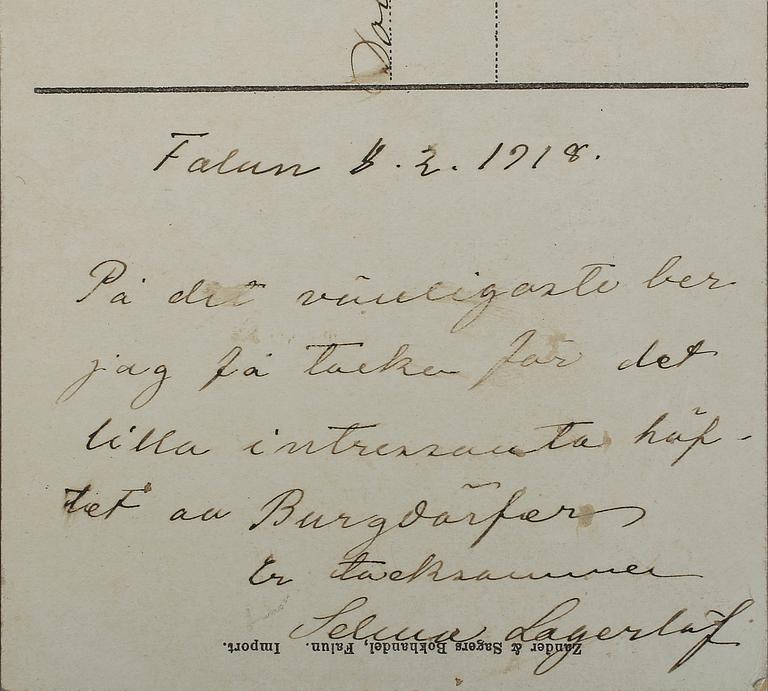 Falun 8. 2. 1918.
På det vänligaste ber
jag få tacka för det
lilla intressanta häf-
tet av Burgdörfer
Er tacksamma
Selma Lagerlöf
Zander & Sagers Bokhandel, Falun. Import.